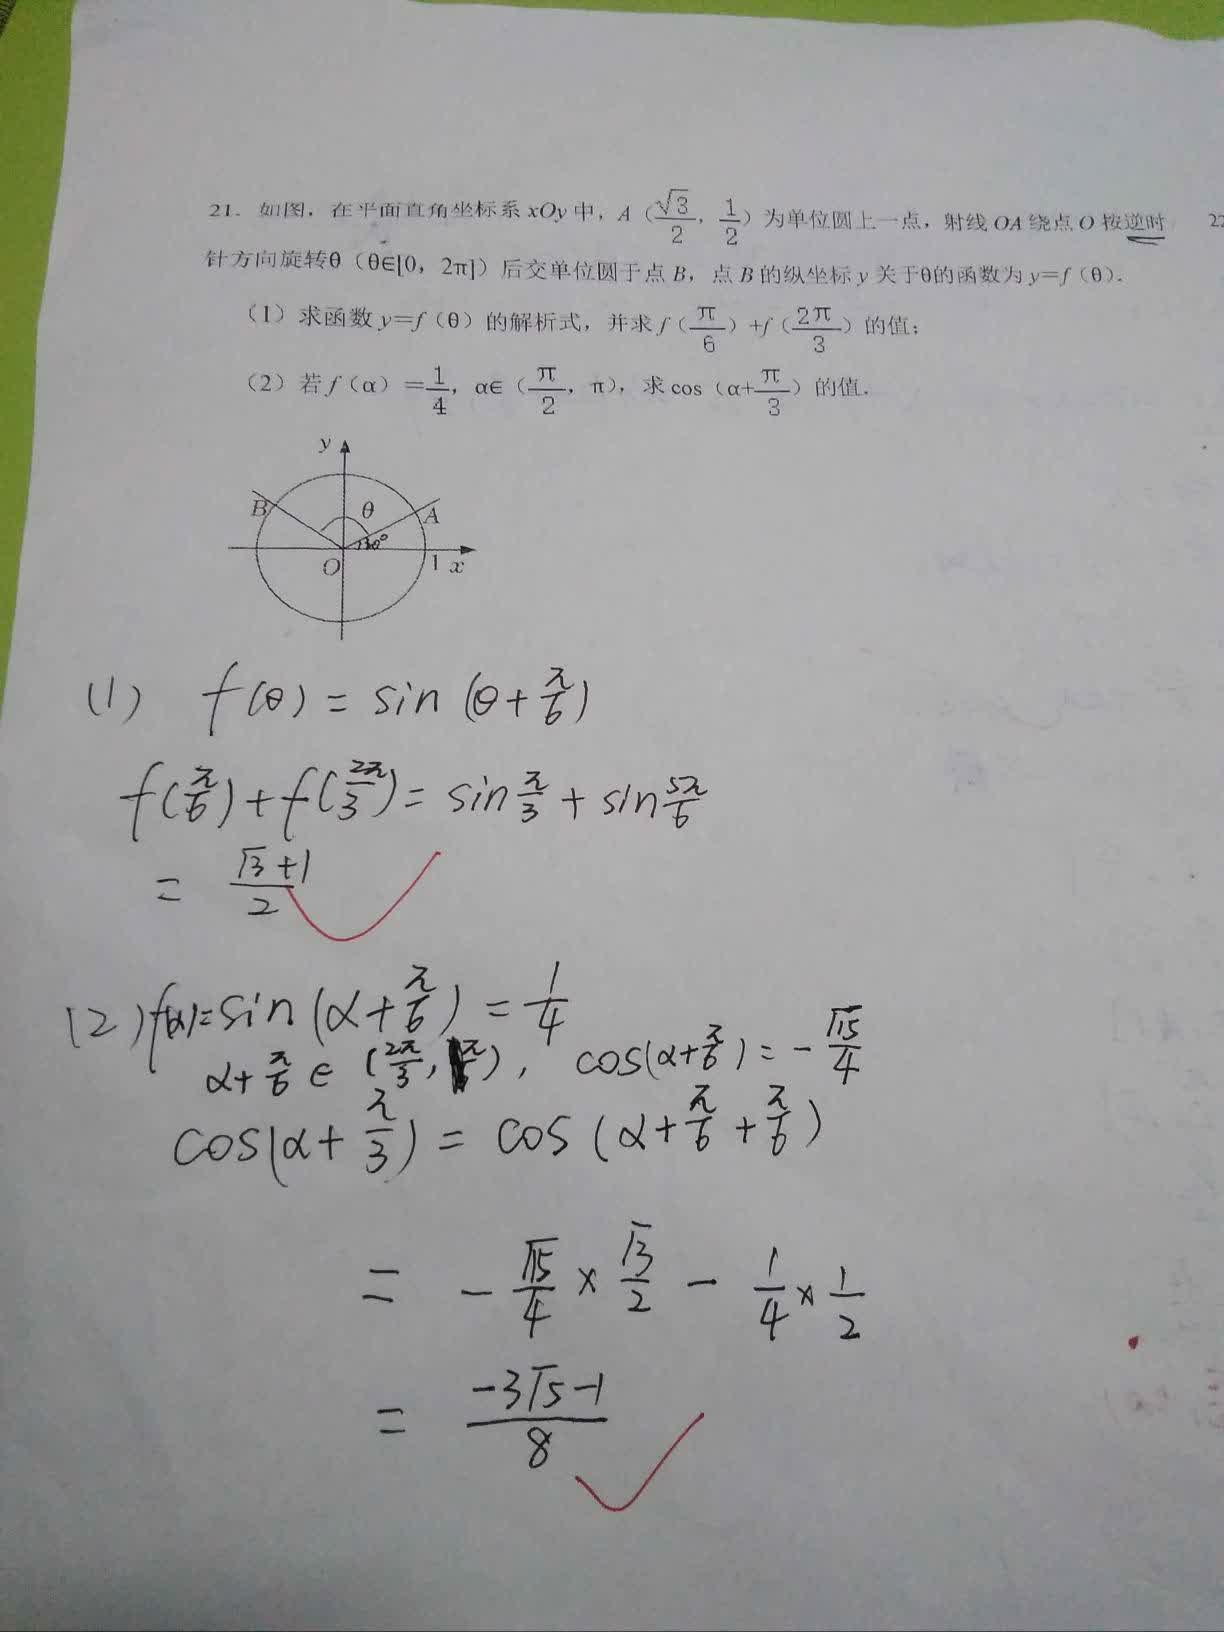 21. 如图，在平面直角坐标系 xOy 中，A（√3/2，1/2）为单位圆上一点，射线 OA 绕点 O 按逆时
针方向旋转θ（θ∈[0，2π]）后交单位圆于点 B，点 B 的纵坐标 y 关于θ的函数为 y=f（θ）.
（1）求函数 y=f（θ）的解析式，并求 f（π/6）+f（2π/3）的值；
（2）若 f（α）=1/4，α∈（π/2，π），求 cos（α+π/3）的值.
22
y
B
θ
A
30°
O
1
x
(1) f(θ) = sin (θ + π/6)
f(π/6) + f(2π/3) = sin π/3 + sin 5π/6
= (√3+1)/2
(2) f(α)= sin (α + π/6) = 1/4
α + π/6 ∈ (2π/3, ), cos(α+π/6) = -√15/4
cos(α + π/3) = cos (α + π/6 + π/6)
= - √15/4 × √3/2 - 1/4 × 1/2
= (-3√5-1)/8